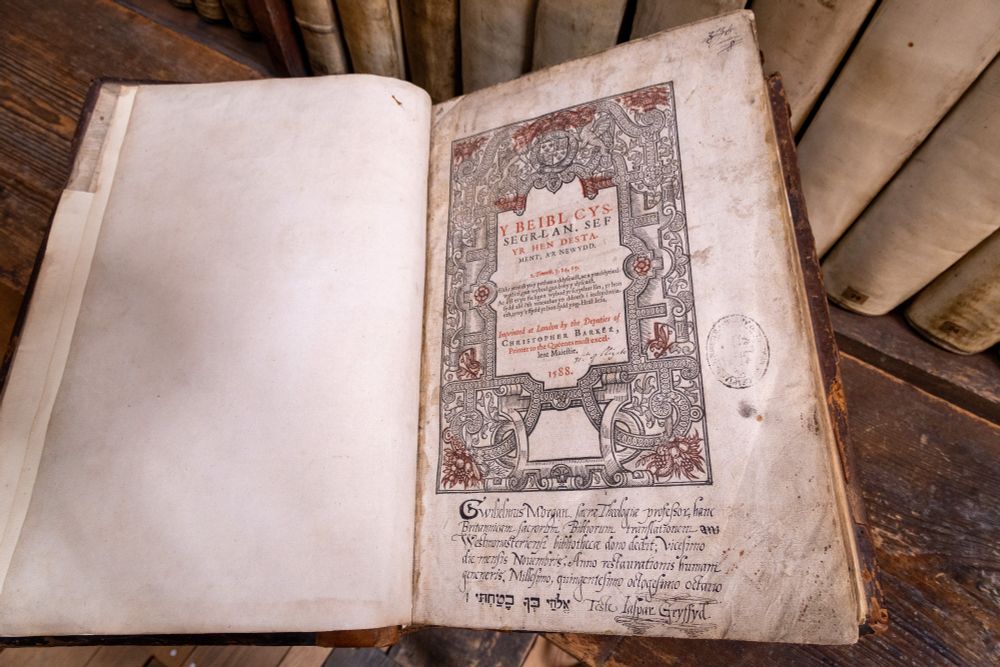 Y BEIBL CYS-
SEGR-LAN. SEF
YR HEN DESTA-
MENT, A'R NEWYDD.
2. Timoth. 3. 14, 15.
Imprinted at London by the Deputies of
CHRISTOPHER BARKER,
Printer to the Queenes most excel-
lent Maiestie.
1588.
Gwilhelmus Morgan sacræ Theologiæ professor, hanc
Britannicam sacrorum Bibliorum translationem
Westmonasteriensi bibliothecæ dono dedit; Vicesimo
die mensis Novembris, Anno restaurationis humani
generis, Millesimo, quingentesimo octogesimo octavo
אֱלֹהַי בְּךָ בָטַחְתִּי Teste Iaspar Gryffyd